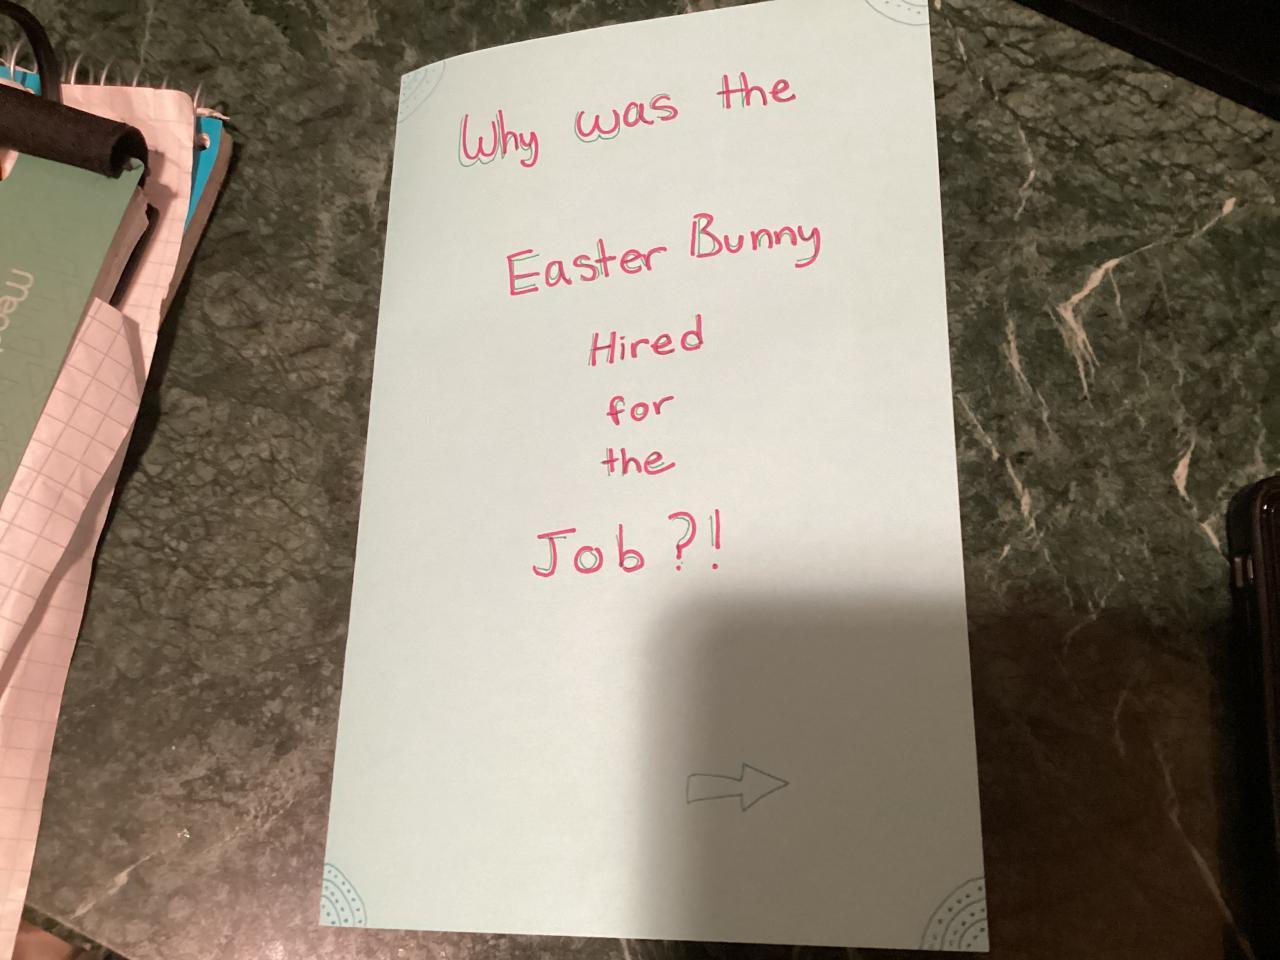 Why was the
Easter Bunny
Hired
for
the
Job?!